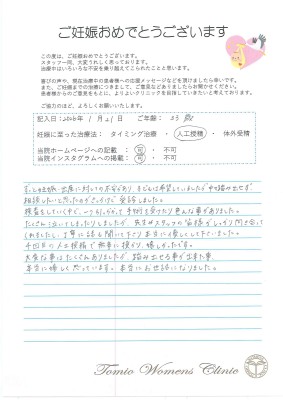 ご妊娠おめでとうございます
この度は、ご妊娠おめでとうございます。
スタッフ一同、大変うれしく思っております。
治療中はいろいろな不安を乗り越えてこられたことと思います。
喜びの声や、現在治療中の患者様への応援メッセージなどを頂けましたら幸いです。
また、ご妊娠までの治療につきまして、ご意見などありましたらお聞かせください。
患者様からのご意見をもとに、よりよいクリニックを目指していきたいと考えております。
ご協力のほど、よろしくお願いいたします。
記入日:2026年 1月21日 ご年齢: 33歳
妊娠に至った治療法: タイミング治療 ・ 人工授精 ・ 体外受精
当院ホームページへの記載 : 可 ・ 不可
当院インスタグラムへの掲載 : 可 ・ 不可
相談したいと思ったのがきっかけで受診しました。
検査をしていく中で、
たくさん泣いてしまったりしましたが、先生がスタッフの皆様がしっかり向き合って
くれましたし、丁寧に話も聞いて下さり本当に
人工授精で無事に授かり、嬉しかったです。
大変な事はたくさんありましたが、踏み出せる事が出来た事、
本当に嬉しく思っています。本当にお世話になりました。
Tomio Womens Clinic